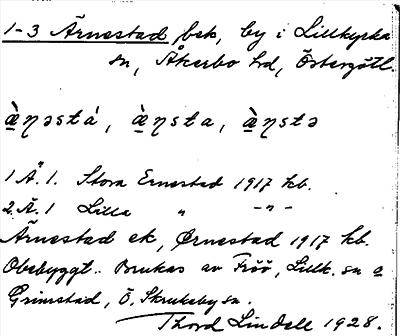 1-3 Ärnestad bsk, by i Lillkyrka
sn, Åkerbo hd, Östergötl.
æ̀ṇəstá, æ̀ṇsta, æ̀ṇstə
1 Ä. 1. Stora Ernestad 1917 kb.
2 Ä. 1 Lilla " -"-
Ärnestad ek, Ørnestad 1917 kb.
Obebyggt.. Brukas av Fröö, Lillk. sn o
Grimstad, Ö. Skrukeby sn.
Thord Lindell 1928.